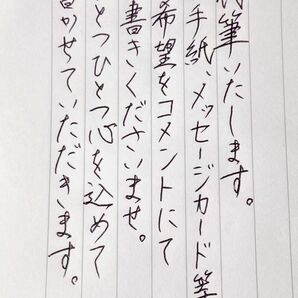 筆いたします。
手紙、メッセージカード等
希望をコメントにて
書きくださいませ。
とつひとつ心を込めて
書かせていただきます。